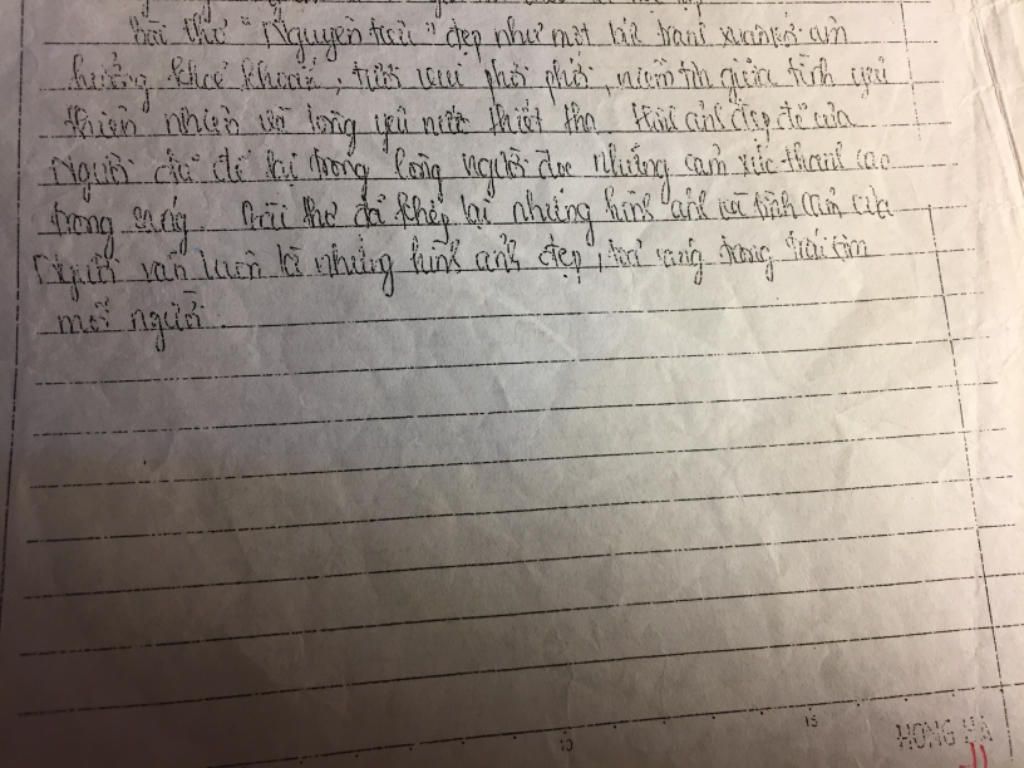 bài thơ "Nguyên tiêu" đẹp như một bức tranh xuân, âm
hưởng khoẻ khoắn, tươi vui phơi phới, niềm tin giữa tình yêu
thiên nhiên và lòng yêu nước thiết tha. Hình ảnh đẹp đẽ của
Người đã để lại trong lòng người đọc những cảm xúc thanh cao
trong sáng. Bài thơ đã khép lại nhưng hình ảnh và tình cảm của
Người vẫn luôn là những hình ảnh đẹp, toả sáng trong trái tim
mỗi người.
10
15
HONG HA